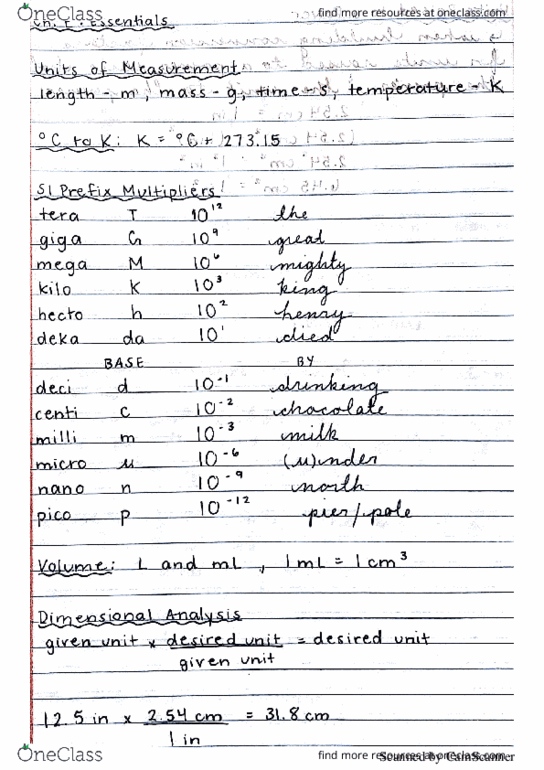 OneClass
find more resources at oneclass.com
Ch. E: Essentials
Units of Measurement
length - m, mass - g, time - s, temperature - K
°C to K: K = °C + 273.15
SI Prefix Multipliers
tera T 10¹² the
giga G 10⁹ great
mega M 10⁶ mighty
kilo K 10³ king
hecto h 10² henry
deka da 10¹ died
BASE BY
deci d 10⁻¹ drinking
centi c 10⁻² chocolate
milli m 10⁻³ milk
micro μ 10⁻⁶ (μ)nder
nano n 10⁻⁹ north
pico p 10⁻¹² pier/pole
Volume: L and mL, 1 mL = 1 cm³
Dimensional Analysis
given unit × desired unit = desired unit
given unit
12.5 in × 2.54 cm = 31.8 cm
1 in
OneClass
find more resources at oneclass.com
Scanned by CamScanner